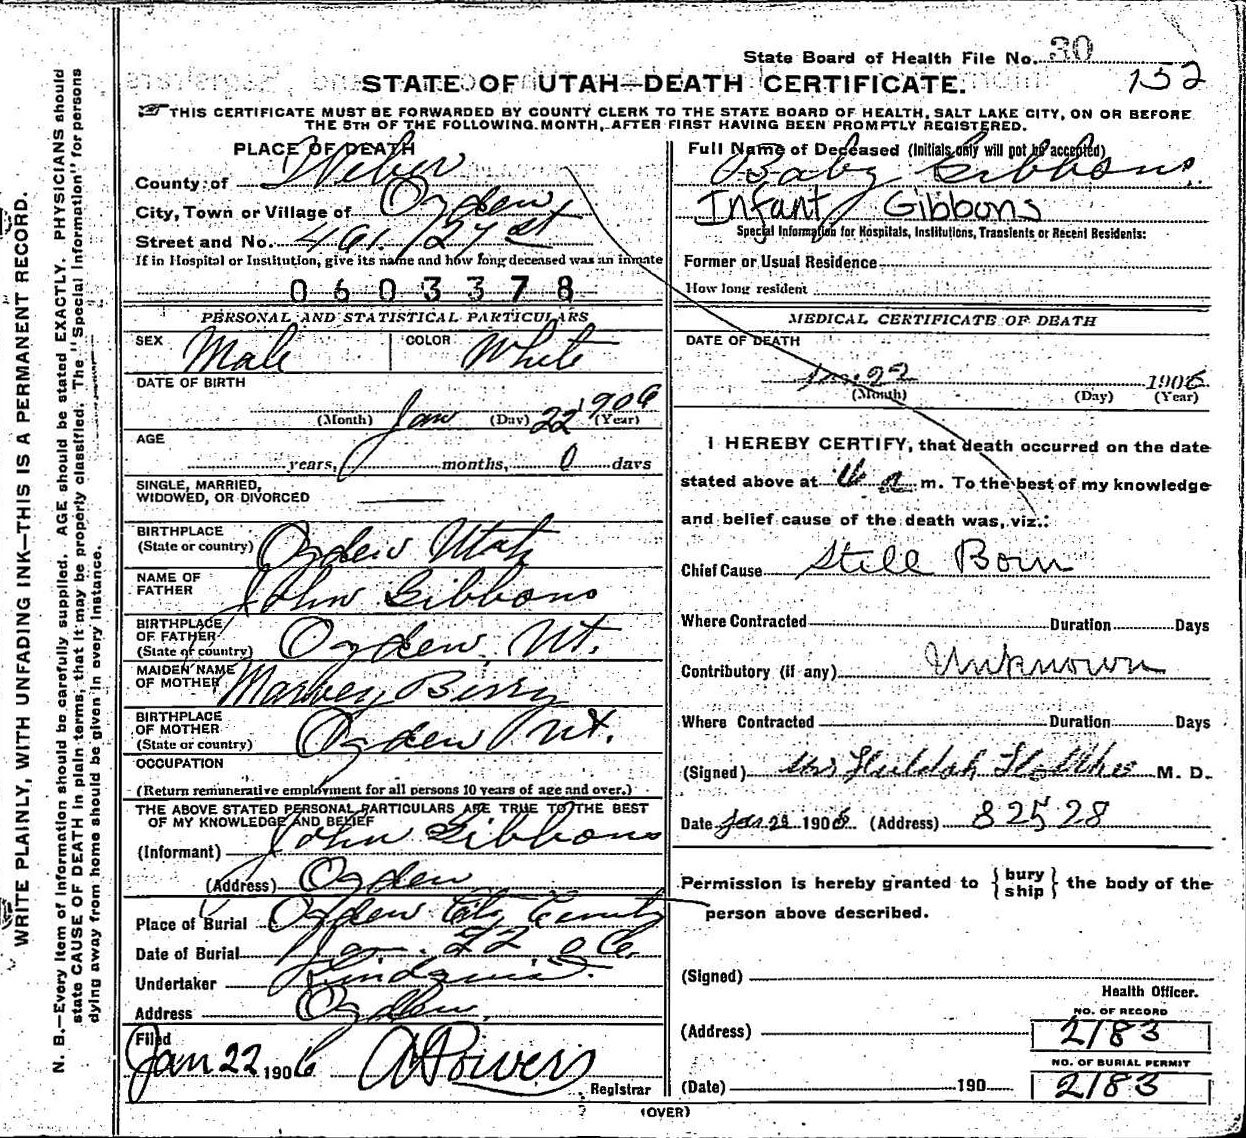 State Board of Health File No. 30
152
STATE OF UTAH—DEATH CERTIFICATE.
THIS CERTIFICATE MUST BE FORWARDED BY COUNTY CLERK TO THE STATE BOARD OF HEALTH, SALT LAKE CITY, ON OR BEFORE
THE 5TH OF THE FOLLOWING MONTH, AFTER FIRST HAVING BEEN PROMPTLY REGISTERED.
WRITE PLAINLY, WITH UNFADING INK—THIS IS A PERMANENT RECORD.
N. B.—Every item of information should be carefully supplied. AGE should be stated EXACTLY. PHYSICIANS should
state CAUSE OF DEATH in plain terms, that it may be properly classified. The "Special Information" for persons
dying away from home should be given in every instance.
PLACE OF DEATH
County of Weber
City, Town or Village of Ogden
Street and No. 461. 27 st
If in Hospital or Institution, give its name and how long deceased was an inmate
0603378
PERSONAL AND STATISTICAL PARTICULARS
SEX Male COLOR White
DATE OF BIRTH
(Month) Jan (Day) 22 1906 (Year)
AGE
years, months, 0 days
SINGLE, MARRIED,
WIDOWED, OR DIVORCED
BIRTHPLACE
(State or country) Ogden Utah
NAME OF
FATHER John Gibbons
BIRTHPLACE
OF FATHER
(State or country) Ogden, Ut.
MAIDEN NAME
OF MOTHER Berry
BIRTHPLACE
OF MOTHER
(State or country) Ogden Ut.
OCCUPATION
(Return remunerative employment for all persons 10 years of age and over.)
THE ABOVE STATED PERSONAL PARTICULARS ARE TRUE TO THE BEST
OF MY KNOWLEDGE AND BELIEF
(Informant) John Gibbons
(Address) Ogden
Place of Burial Ogden City
Date of Burial Jan. 22 06
Undertaker
Address Ogden.
Filed
Jan 22 1906 Powers
Registrar
Full Name of Deceased (Initials only will not be accepted)
Baby Gibbons.
Infant Gibbons
Special Information for Hospitals, Institutions, Transients or Recent Residents:
Former or Usual Residence
How long resident
MEDICAL CERTIFICATE OF DEATH
DATE OF DEATH
Jan. 22 1906
(Month) (Day) (Year)
I HEREBY CERTIFY, that death occurred on the date
stated above at a m. To the best of my knowledge
and belief cause of the death was, viz.:
Chief Cause Still Born
Where Contracted Duration Days
Contributory (if any) Unknown
Where Contracted Duration Days
(Signed) Mrs M. D.
Date Jan 1906. (Address) 825 28
Permission is hereby granted to {bury ship} the body of the
person above described.
(Signed)
Health Officer.
(Address)
NO. OF RECORD
2183
NO. OF BURIAL PERMIT
2183
(Date) 190
(OVER)